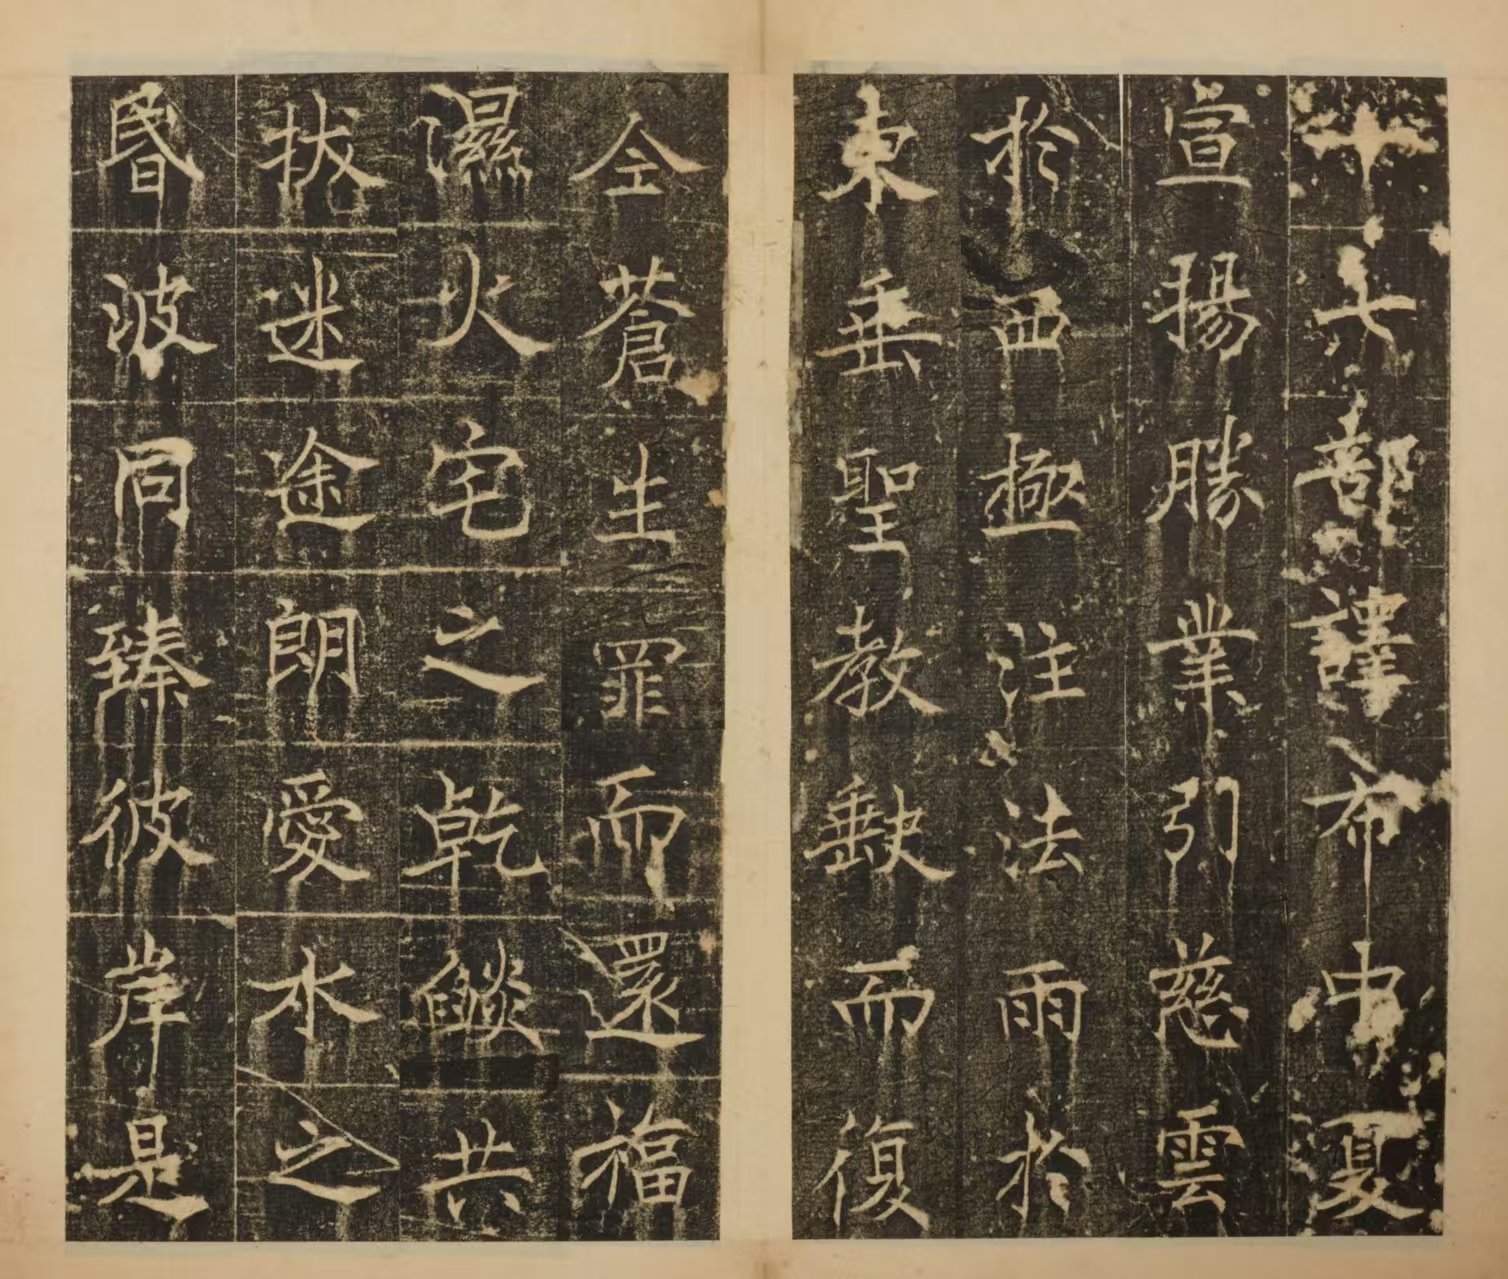 十七部譯布中夏
宣揚勝業引慈雲
於西極注法雨於
東垂聖教缺而復
全蒼生罪而還福
濕火宅之乾燄共
拔迷途朗愛水之
昬波同臻彼岸是